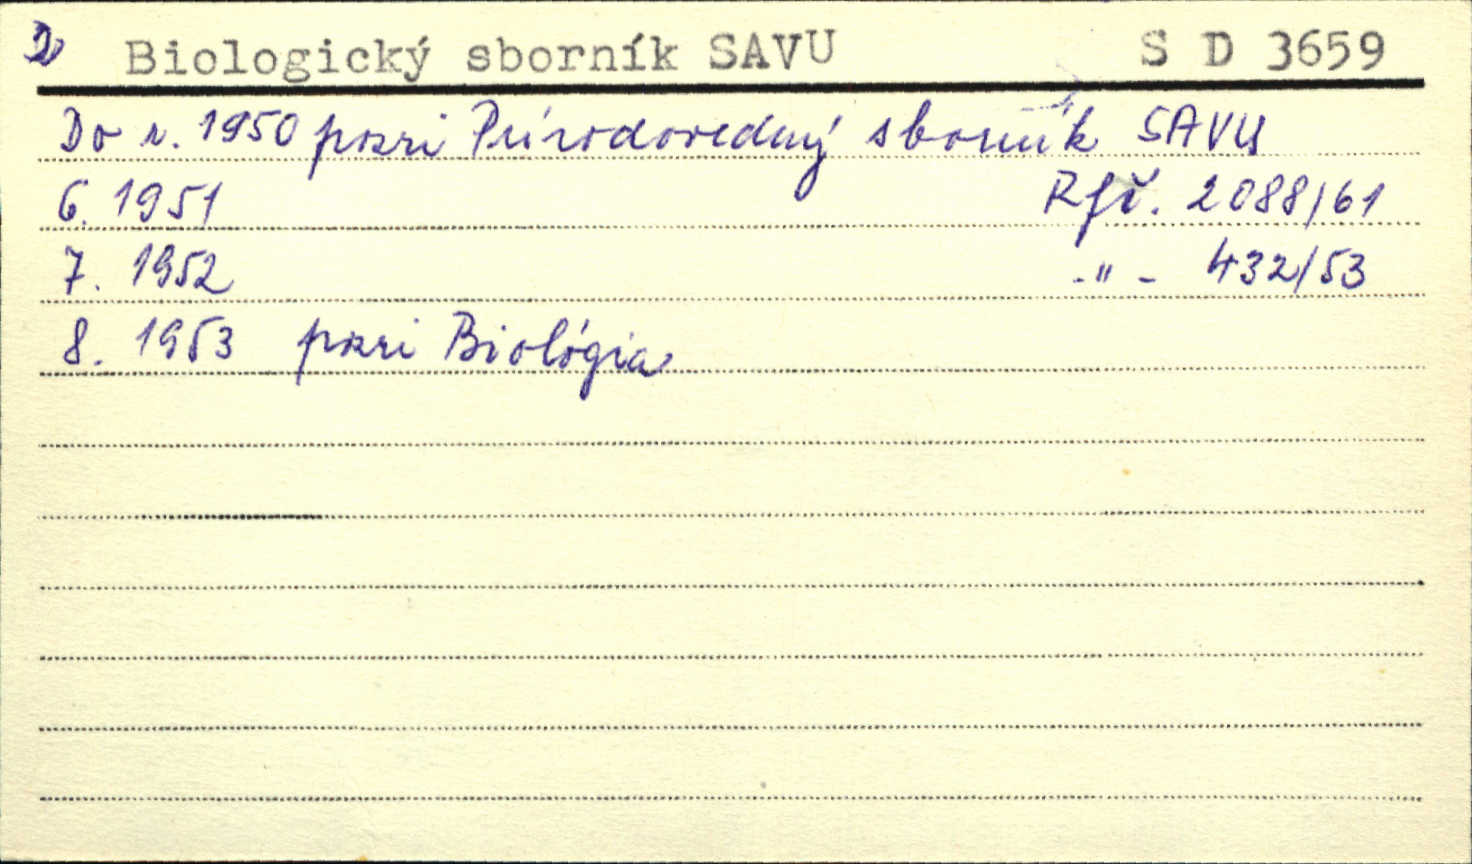 D Biologický sborník SAVU S D 3659
Do r. 1950 pozri Prírodovedný sborník SAVU
6. 1951 Rfč. 2088/61
7. 1952 -"- 432/53
8. 1953 pozri Biológia